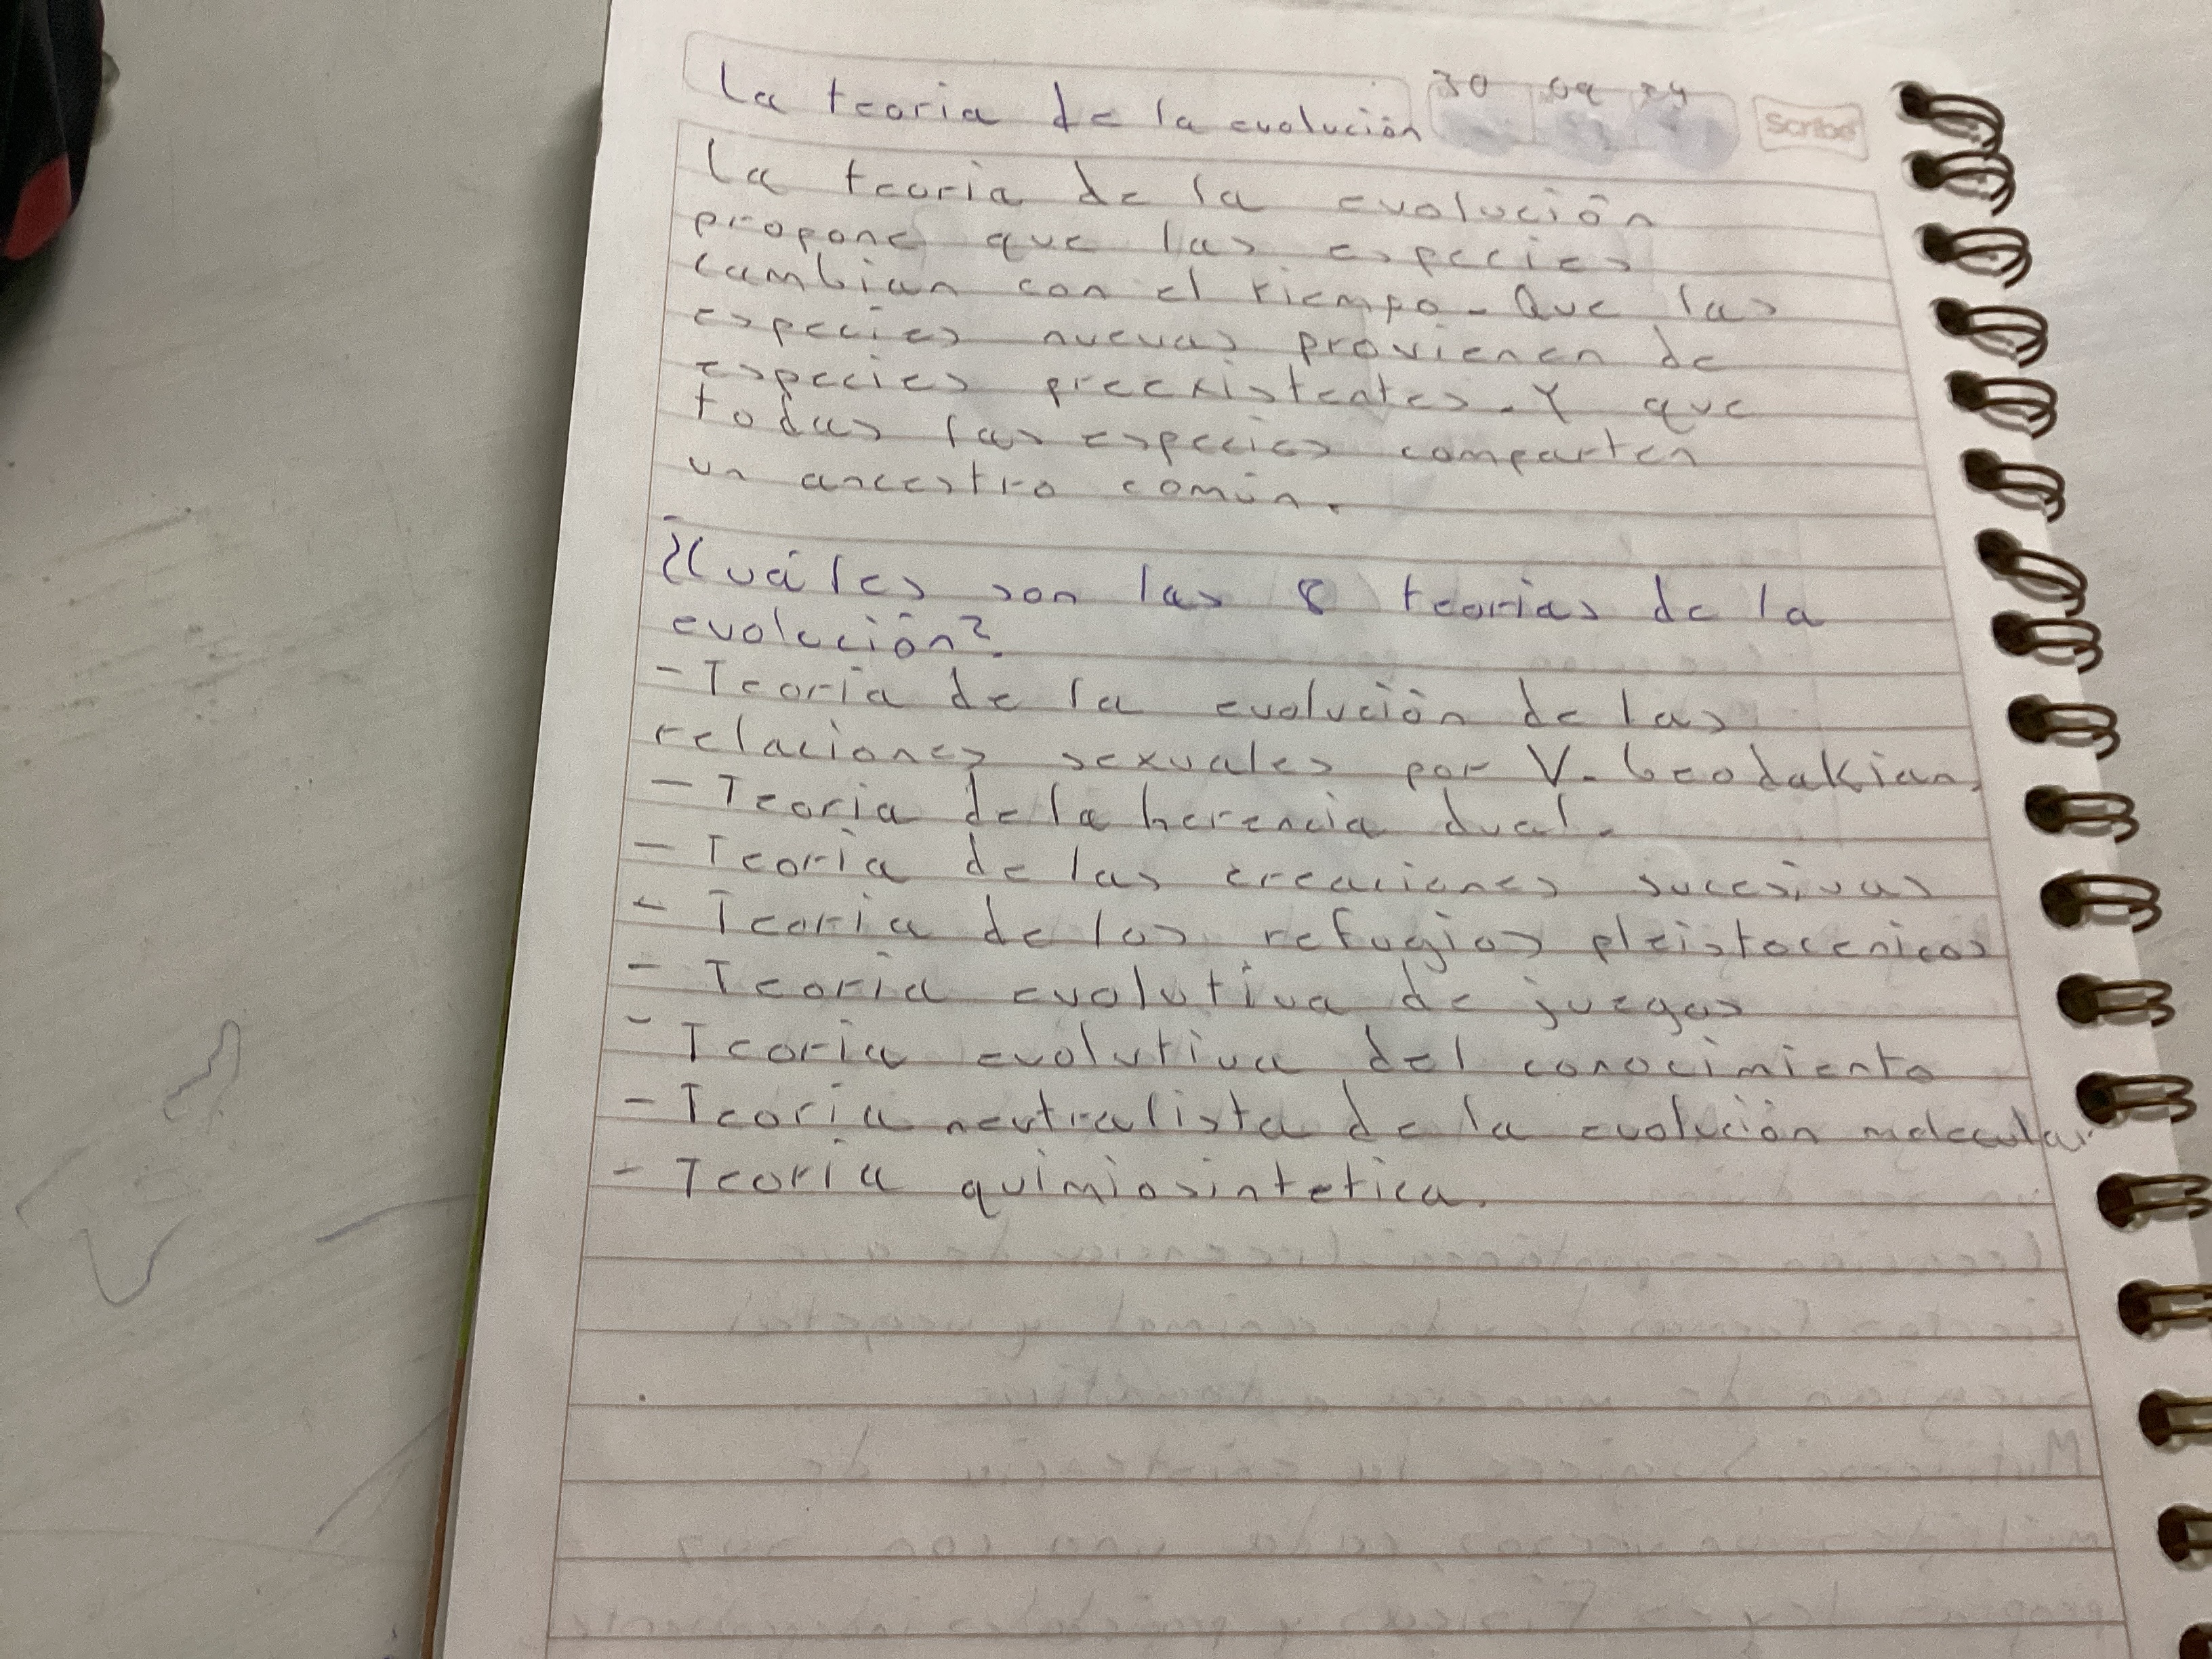 La teoria de la evolución 30 09 24
Scribe
La teoria de la evolución
propone que las especies
cambian con el tiempo. Que las
especies nuevas provienen de
especies preexistentes. Y que
todas las especies comparten
un ancestro común.
¿Cuáles son las 8 teorias de la
evolución?
- Teoria de la evolución de las
relaciones sexuales por V. Geodakian.
- Teoria de la herencia dual.
- Teoria de las creaciones sucesivas
- Teoria de los refugios pleistocenicos
- Teoria evolutiva de juegos
- Teoria evolutiva del conocimiento
- Teoria neutralista de la evolución molecular
- Teoria quimiosintetica.